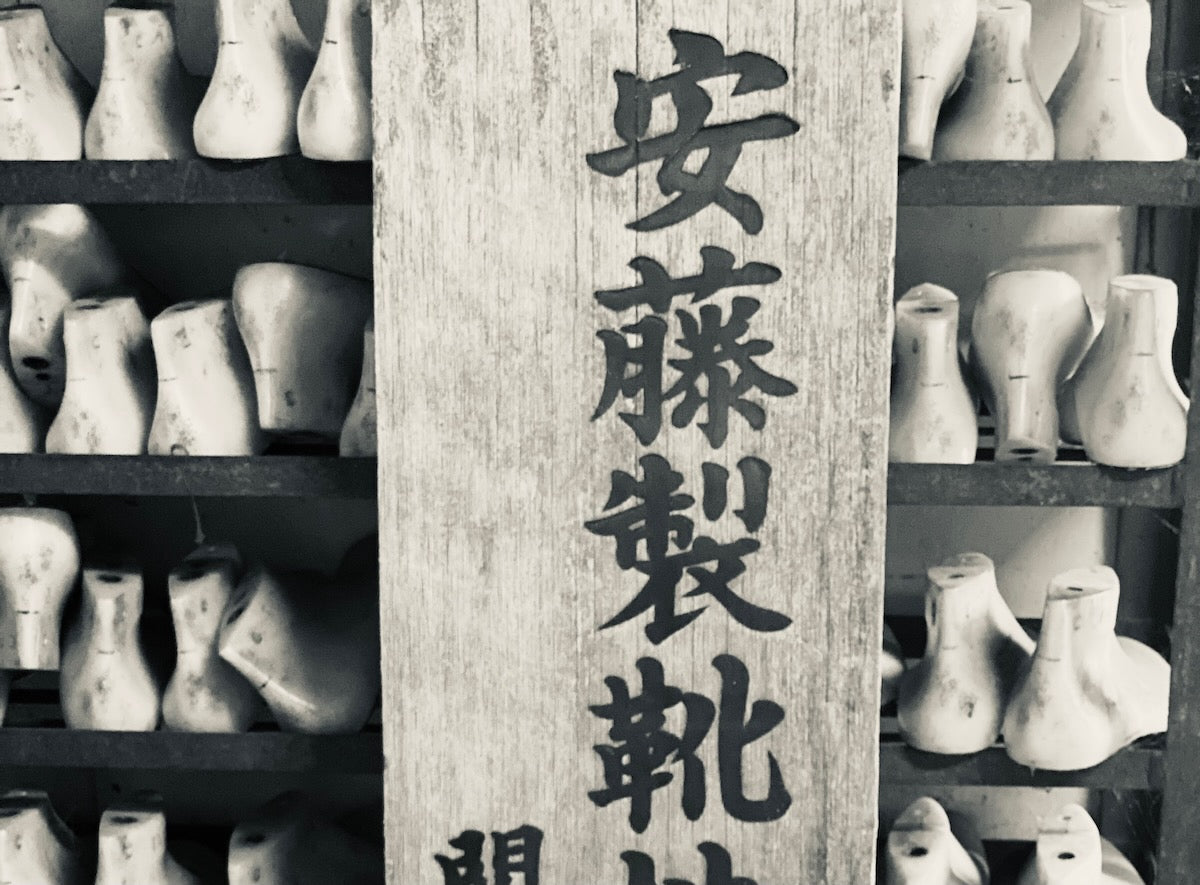 安藤製靴